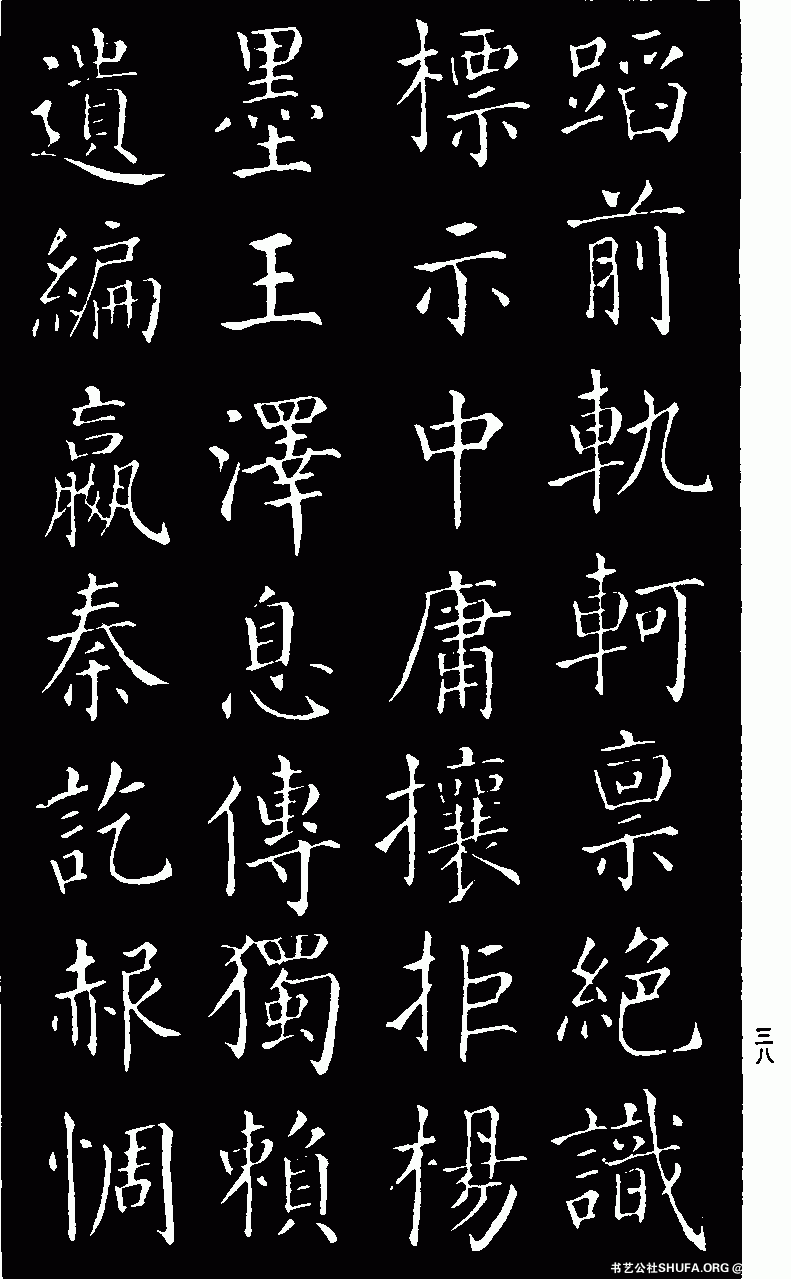 蹈前軌軻稟絕識
標示中庸攘拒楊
墨王澤息傳獨賴
遺編嬴秦訖赧惆
三八
书艺公社SHUFA.ORG @